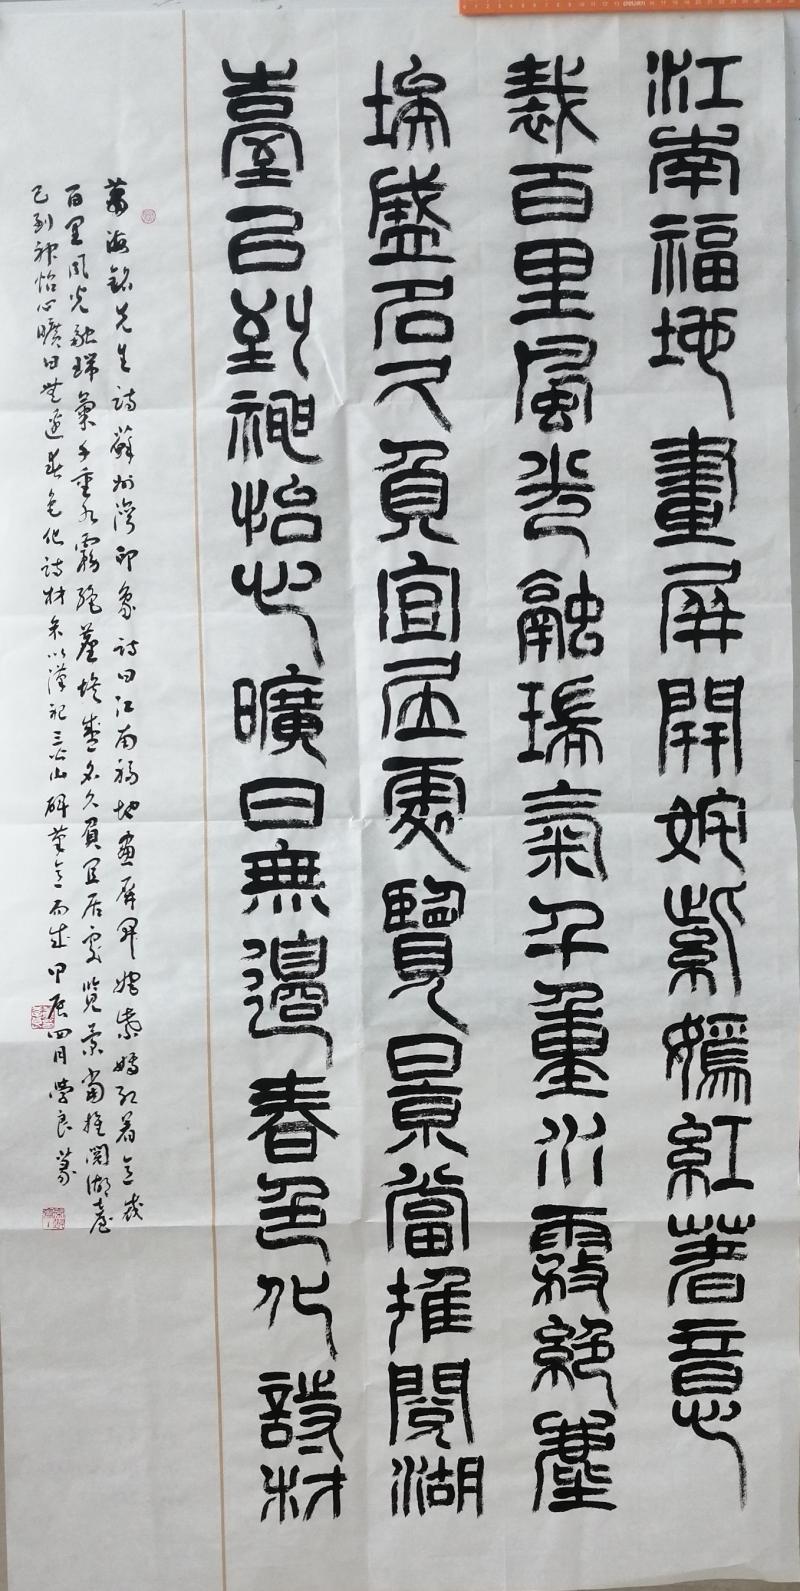 江南福地畫屏開姹紫嫣紅著意
裁百里風光融瑞氣千重水霧絕塵
埃盛名久負宜居處覽景當推閱湖
臺已到神怡心曠日無邊春色化詩材
海銘先生詩蘇州灣印象詩曰江南福地畫屏開姹紫嫣紅著意裁
百里風光融瑞氣千重水霧絕塵埃盛名久負宜居處覽景當推閱湖臺
已到神怡心曠日無邊春色化詩材余以漢祀三公山碑筆意而成甲辰四月學良篆